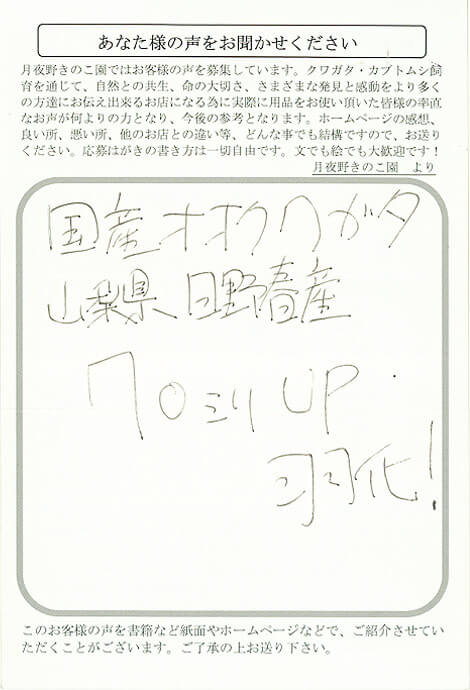 あなた様の声をお聞かせください
月夜野きのこ園ではお客様の声を募集しています。クワガタ・カブトムシ飼
育を通じて、自然との共生、命の大切さ、さまざまな発見と感動をより多く
の方達にお伝え出来るお店になる為に実際に用品をお使い頂いた皆様の率直
なお声が何よりの力となり、今後の参考となります。ホームページの感想、
良い所、悪い所、他のお店との違い等、どんな事でも結構ですので、お送り
ください。応募はがきの書き方は一切自由です。文でも絵でも大歓迎です！
月夜野きのこ園　より
国産オオクワガタ
山梨県 日野春産
70ミリ UP
羽化!
このお客様の声を書籍など紙面やホームページなどで、ご紹介させてい
ただくことがございます。ご了承の上お送り下さい。